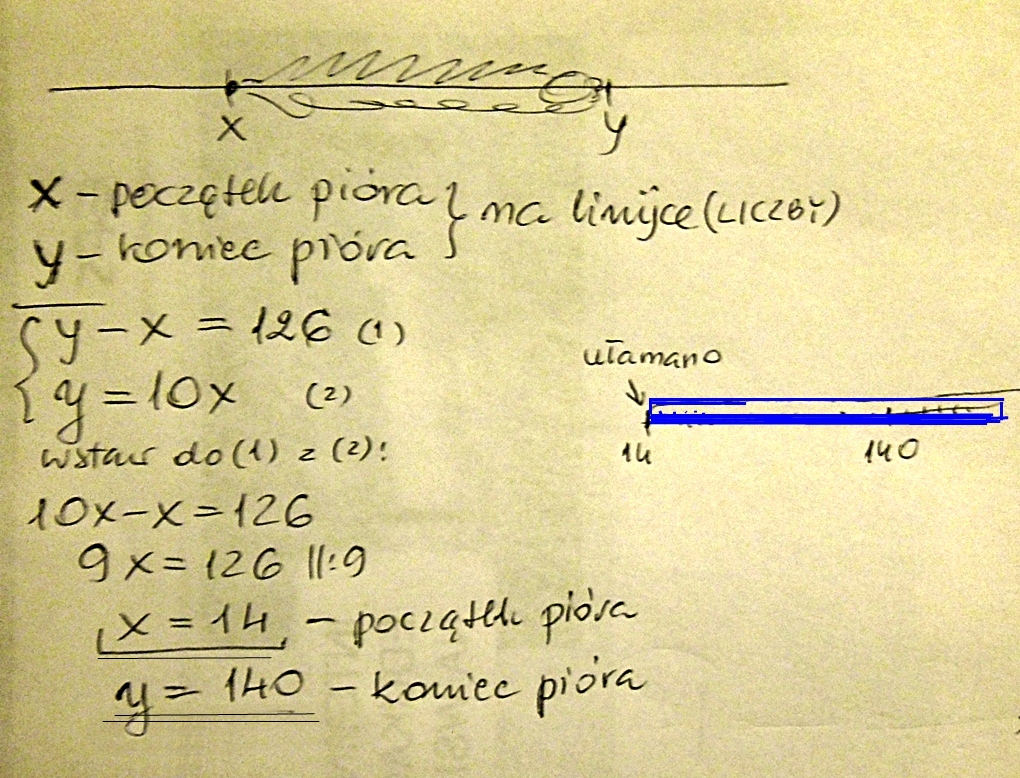 x y
x - początek pióra } na linijce (LICZBY)
y - koniec pióra
{ y - x = 126 (1)
y = 10x (2)
wstaw do (1) z (2):
10x - x = 126
9x = 126 ||:9
x = 14 - początek pióra
y = 140 - koniec pióra
ułamano
14 140